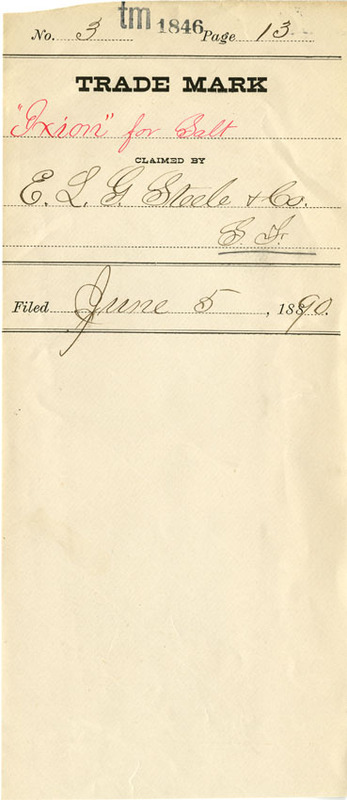 No. 3 tm 1846 Page 13
TRADE MARK
"Ixion" for Salt
CLAIMED BY
E. L. G. Steele & Co.
S. F.
Filed June 5, 1890.